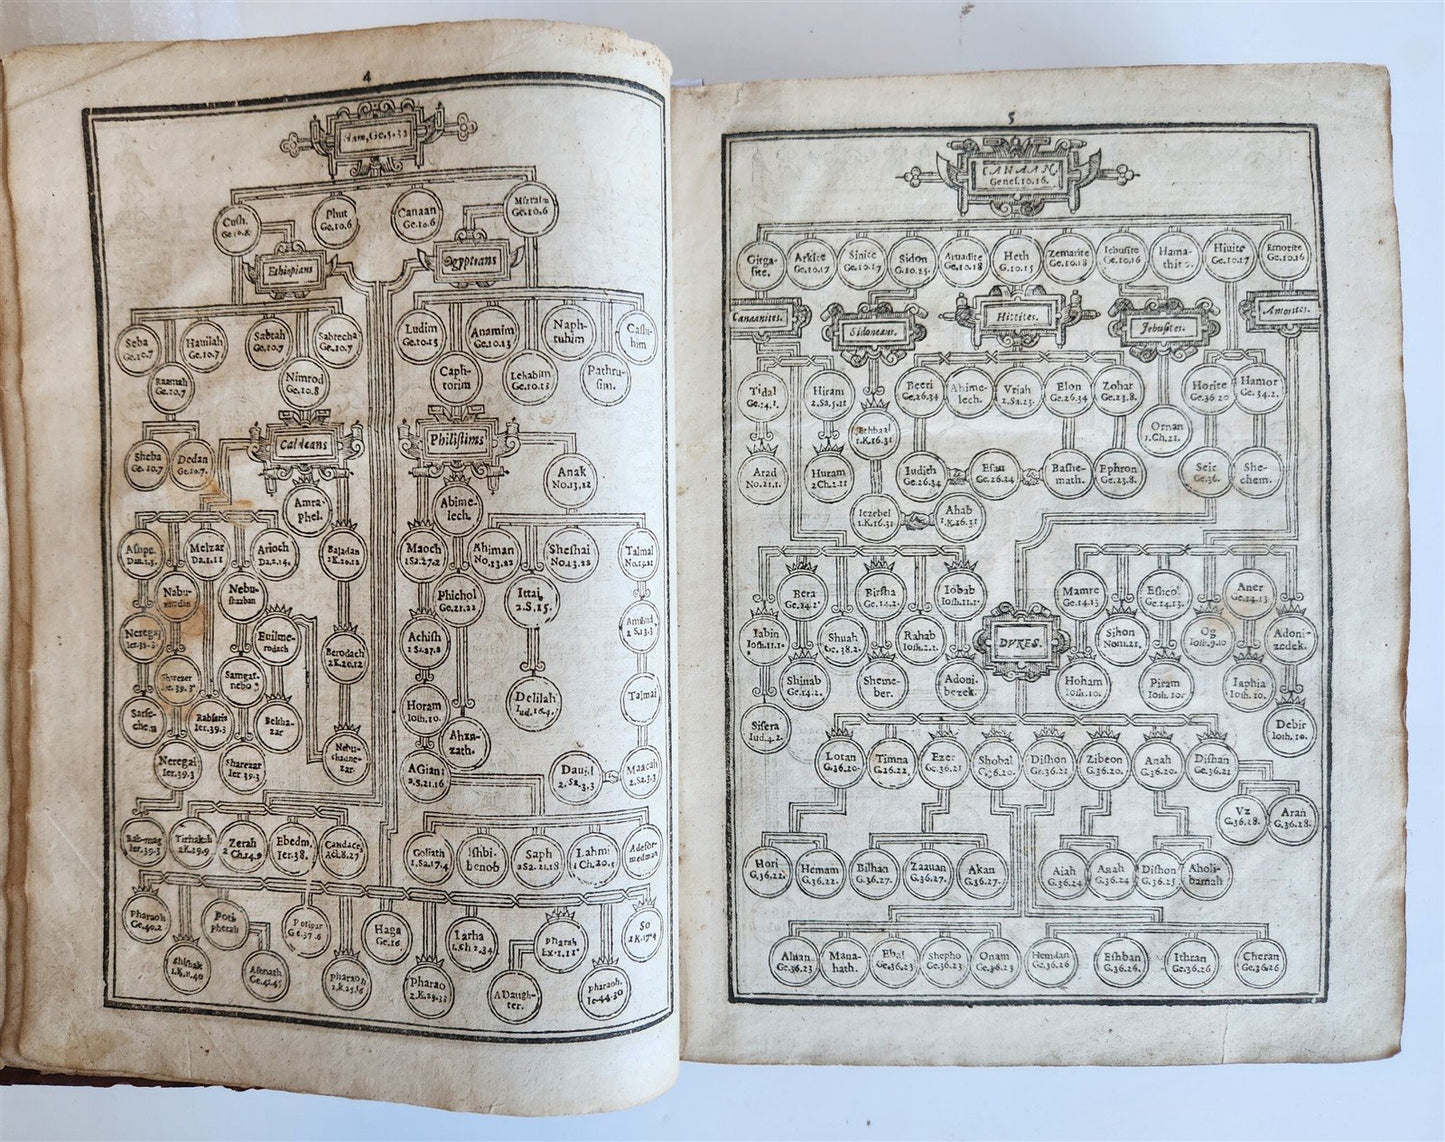 4
Ge.5.32
Cush.
Ge.10.8.
Phut
Ge.10.6
Canaan
Ge.10.6
Mizraim
Ge.10.6
Ethiopians
Egyptians
Seba
Ge.10.7
Hauilah
Ge.10.7
Sabtah
Ge.10.7
Sabtecha
Ge.10.7
Raamah
Ge.10.7
Nimrod
Ge.10.8
Ludim
Ge.10.13
Anamim
Ge.10.13
Naph-
tuhim
Caslu-
him
Caph-
torim
Lehabim
Ge.10.13
Pathru-
sim.
Caldeans
Philistims
Sheba
Ge.10.7
Dedan
Ge.10.7.
Amra-
phel.
Abime-
lech.
Anak
No.13.22
Melzar
Da.1.11
Arioch
Da.2.14.
Baladan
2K.20.12
Maoch
1Sa.27.2
Ahiman
No.13.22
Sheshai
No.13.22
Talmai
No.13.22
Nabu-
Nebu-
shazban
Phichol
Ge.21.22
Ittai,
2.S.15.
2 S.13.3
Neregal
Ier.39.3
Euilme-
rodach
Berodach
2K.20.12
Achish
1 Sa.27.2
Samgar-
nebo
Delilah
Iud.16.4.
Talmai
Sarse-
Rabsaris
Ier.39.3
Belsha-
zar
Horam
Iosh.10.
Ahza-
zath.
Neregal
Ier.39.3
Sharezar
Ier.39.3
Nebu-
chadnez-
zar.
A Giant
2.S.21.16
Dauid
2.Sa.3.3
Maacah
2.Sa.3.3
Rab-mag
Ier.39.3
Tirhakah
2K.19.9
Zerah
2 Ch.14.9
Ebedm.
Ier.38.
Candace,
Act.8.27
Goliath
1.Sa.17.4
Ishbi-
benob
Saph
2Sa.21.18
Lahmi
1 Ch.20.5
Pharaoh
Ge.40.2
Poti-
pherah
Potipar
Ge.37.6
Haga
Ge.16
Iarha
1.Ch 2.34.
Pharah
Ex.1.11
So
2 K.17.4
Shishak
1.K.11.40
Asenath
Ge.41.45
Pharaoh
Pharao
2.K.23.33
A Daugh-
ter.
Pharaoh.
Ie.44.30
5
CANAAN,
Genes.10.16.
Girga-
site.
Arkite
Ge.10.17
Sinite
Ge.10.17
Sidon
G.10.25.
Aruadite
Ge.10.18
Heth
G.10.15
Zemarite
Ge.10.18
Iebusite
Ge.10.16
Hama-
thite.
Hiuite
Ge.10.17
Emorite
Ge.10.16
Canaanites.
Sidoneans.
Hittites.
Jebusites.
Amorites.
Tidal
Ge.14.1.
Hiram
2.Sa.5.11
Beeri
Ge.26.34
Ahime-
lech.
Vriah
2.Sa.23.
Elon
Ge.26.34
Zohar
Ge.23.8.
Horite
Ge.36 20
Hamor
Ge.34.2.
Ethbaal
1.K.16.31
Ornan
1.Ch.21.
Arad
No.21.1.
Huram
2 Ch.2.11
Iudith
Ge.26.34
Esau
Ge.26.24
Bashe-
math.
Ephron
Ge.23.8.
Seir
Ge.36.
She-
chem.
Iezebel
1.K.16.31
Ahab
1.K.16.31
Bera
Ge.14.2.
Birsha
Ge.14.2
Iobab
Iosh.11.1.
Mamre
Ge.14.13
Eshcol
Ge.14.13.
Aner
Ge.14.13
Iabin
Iosh.11.1.
Shuah
Ge.38.2.
Rahab
Iosh.2.1.
DVKES.
Sihon
No.21.
Og
Iosh.9.10
Adoni-
zedek.
Shinab
Ge.14.2.
Sheme-
ber.
Adoni-
bezek.
Hoham
Iosh.10.
Piram
Iosh.10.
Iaphia
Iosh.10.
Sisera
Iud.4.2.
Debir
Iosh.10.
Lotan
G.36.20.
Timna
G.36.22,
Ezer
Ge.36.21
Shobal
Ge.36.20
Dishon
Ge.36.21
Zibeon
G.36.20.
Anah
G.36.20.
Dishan
Ge.36.21
Vz
G.36.28.
Aran
G.36.28.
Hori
G,36.22.
Hemam
G.36.22.
Bilhan
G.36.27.
Zaauan
G.36.27.
Akan
G.36.27.
Aiah
G.36.24
Anah
G.36.24
Dishon
G.36.25
Aholi-
bamah
Aluan
Ge.36.23
Mana-
hath.
Ebal
Ge.36.23
Shepho
Ge.36.23
Onam
Ge.36.23
Hemdan
Ge.36.26
Eshban
Ge.36.26.
Ithran
Ge.36.26
Cheran
Ge.36.26